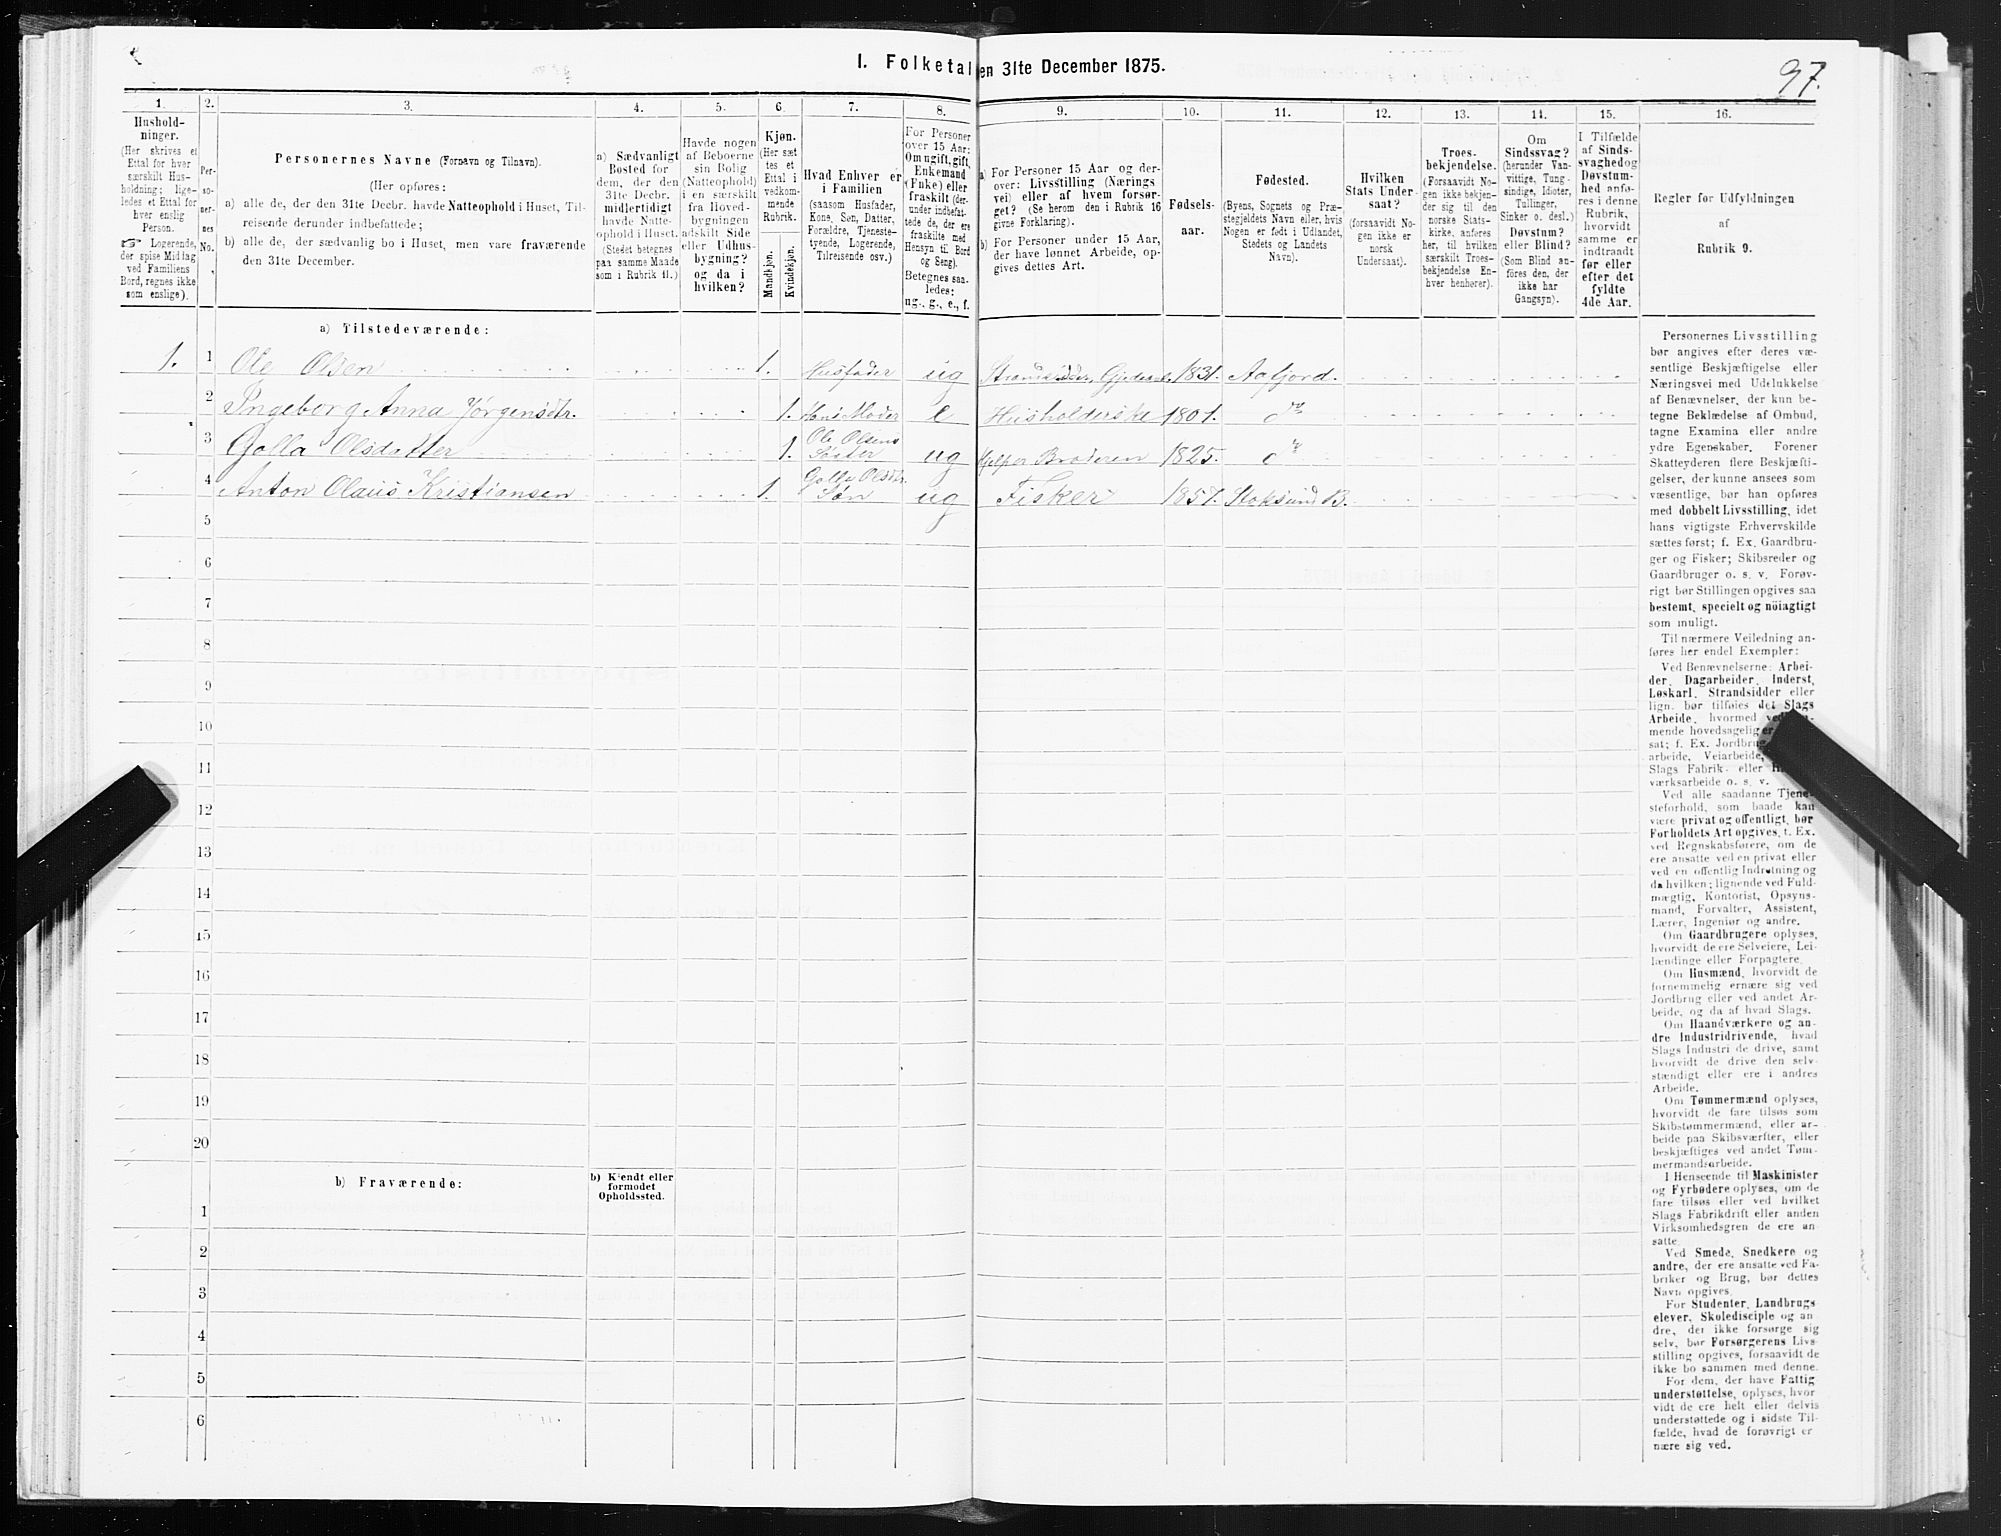 I. Folketal den 31te December 1875.
97.
1.
2.
3.
4.
5.
6.
7.
8.
9.
10.
11.
12.
13.
14.
15.
16.
Hushold-
ninger.
(Her skrives et
Ettal for hver
særskilt Hus-
holdning; lige-
ledes et Ettal for
hver enslig
Person.
☞ Logerende,
der spise Middag
ved Familiens
Bord, regnes ikke
som enslige).
Per-
so-
ner-
nes
No.
Personernes Navne (Fornavn og Tilnavn).
(Her opføres:
a) alle de, der den 31te Decbr. havde Natteophold i Huset, Til-
reisende derunder indbefattede;
b) alle de, der sædvanlig bo i Huset, men vare fraværende
den 31te December.
a) Sædvanligt
Bosted for
dem, der den
31te Decbr.
midlertidigt
havde Natte-
ophold i Huset.
(Stedet betegnes
paa samme Maade
som i Rubrik 11.)
Havde nogen
af Beboerne
sin Bolig
(Natteophold)
i en særskilt
fra Hoved-
bygningen
adskilt Side
eller Udhus-
bygning?
og da i
hvilken?
Kjøn.
(Her sæt
tes et
Ettal i
vedkom-
mende
Rubrik.
Mandkjøn.
Kvindekjøn.
Hvad Enhver er
i Familien
(saasom Husfader,
Kone, Søn, Datter,
Forældre, Tjeneste-
tyende, Logerende,
Tilreisende osv.)
For Personer
over 15 Aar:
Om ugift, gift,
Enkemand
(Enke) eller
fraskilt (der-
under indbefat-
tede de, der ere
fraskilte med
Hensyn til Bord
og Seng).
Betegnes saa-
ledes:
ug., g., e., f.
a) For Personer 15 Aar og der-
over: Livsstilling (Nærings
vei) eller af hvem forsør-
get? (Se herom den i Rubrik 16
givne Forklaring).
b) For Personer under 15 Aar,
der have lønnet Arbeide, op-
gives dettes Art.
Fødsels-
aar.
Fødested.
(Byens, Sognets og Præ-
stegjeldets Navn eller, hvis
Nogen er født i Udlandet,
Stedets og Landets
Navn).
Hvilken
Stats Under-
saat?
(forsaavidt No-
gen ikke er
norsk
Undersaat).
Troes-
bekjendelse.
(Forsaavidt No-
gen ikke bekjen-
der sig til den
norske Stats-
kirke, anføres
her, til hvilken
særskilt Troes-
bekjendelse En-
hver henhører).
Om
Sindssvag?
(herunder Van-
vittige, Tung-
sindige, Idioter,
Tullinger,
Sinker o. desl.)
Døvstum?
eller Blind?
(Som Blind an-
føres den, der
ikke har
Gangsyn).
I Tilfælde
af Sinds-
svaghed og
Døvstum-
hed anfø-
res i denne
Rubrik,
hvorvidt
samme er
indtraadt
før eller
efter det
fyldte
4de Aar.
Regler før Udfyldningen
af
Rubrik 9.
a) Tilstedeværende:
1. 1 Ole Olsen 1. Husfader ug 1831. Aafjord.
2 Ingeborg Anna Jørgensdtr. 1. Hans Moder e Husholderske 1801. do
3 Golla Olsdatter 1. Ole Olsens Søster ug Hjelper Broderen 1825. do
4 Anton Olaus Kristiansen 1. Golla Olsdtr. Søn ug Fisker 1857. Stoksund B.
5
6
7
8
9
10
11
12
13
14
15
16
17
18
19
20
b) Fraværende:
b) Kjendt eller
formodet
Opholdssted.
1
2
3
4
5
6
Personernes Livsstilling
bør angives efter deres væ-
sentlige Beskjæftigelse eller
Næringsvei med Udelukkelse
af Benævnelser, der kun be-
tegne Beklædelse af Ombud,
tagne Examina eller andre
ydre Egenskaber. Forener
Skatteyderen flere Beskjæfti-
gelser, der kunne ansees som
væsentlige, bør han opføres
med dobbelt Livsstilling, idet
hans vigtigste Erhvervskilde
sættes først; f. Ex. Gaardbru-
ger og Fisker; Skibsreder og
Gaardbruger o. s. v. Forøv-
rigt bør Stillingen opgives saa
bestemt, specielt og nöiagtigt
som muligt.
Til nærmere Veiledning an-
føres her endel Exempler:
Ved Benævnelserne: Arbei-
der, Dagarbeider, Inderst,
Løskarl, Strandsidder eller
lign. bør tilføies det Slags
Arbeide, hvormed
mende hovedsagelig er
sat; f. Ex. Jordbrug
arbeide, Veiarbeide,
Slags Fabrik- eller
værksarbeide o. s. v.
Ved alle saadanne Tjene-
steforhold, som baade kan
være privat og offentligt, bør
Forholdets Art opgives, t. Ex.
ved Regnskabsførere, om de
ere ansatte ved en privat eller
ved en offentlig Indretning og
da hvilken; lignende ved Fuld-
mægtig, Kontorist, Opsyns-
mand, Forvalter, Assistent,
Lærer, Ingeniør og andre.
Om Gaardbrugere oplyses,
hvorvidt de ere Selveiere, Lei-
lændinge eller Forpagtere.
Om Husmænd, hvorvidt de
fornemmelig ernære sig ved
Jordbrug eller ved andet Ar-
beide, og da af hvad Slags.
Om Haandværkere og an-
dre Industridrivende, hvad
Slags Industri de drive, samt
hvorvidt de drive den selv-
stændigt eller ere i andres
Arbeide.
Om Tømmermænd oplyses,
hvorvidt de fare tilsøs som
Skibstømmermænd, eller ar-
beide paa Skibsværfter, eller
beskjæftiges ved andet Tøm-
mermandsarbeide.
I Henseende til Maskinister
og Fyrbødere oplyses, om de
fare tilsøs eller ved hvilket
Slags Fabrikdrift eller anden
Virksomhedsgren de ere an-
satte.
Ved Smede, Snedkere og
andre, der ere ansatte ved Fa-
briker og Brug, bør dettes
Navn opgives.
For Studenter, Landbrugs
elever, Skoledisciple og an
dre, der ikke forsørge sig
selv, bør Forsørgerens Livs-
stilling opgives, forsaavidt de
ikke bo sammen med denne.
For dem, der have Fattig
understøttelse, oplyses, hvor
vidt de ere helt eller delvis
understøttede og i sidste Til-
fælde, hvad de forøvrigt er
nære sig ved.